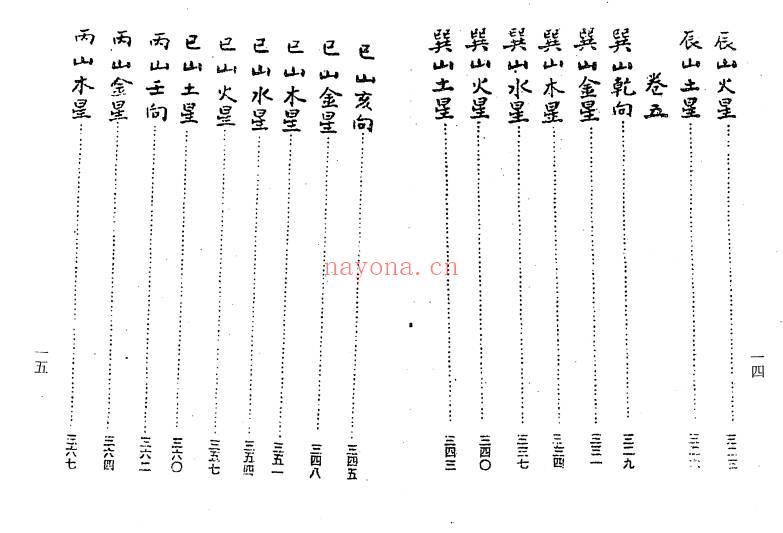 辰山火星……三二三
辰山土星……三二六
卷五
巽山乾向……三二九
巽山金星……三三一
巽山木星……三三四
巽山水星……三三七
巽山火星……三四〇
巽山土星……三四三
一四
巳山亥向……三四五
巳山金星……三四八
巳山木星……三五一
巳山水星……三五四
巳山火星……三五七
巳山土星……三六〇
丙山壬向……三六二
丙山金星……三六四
丙山木星……三六七
一五
nayona.cn